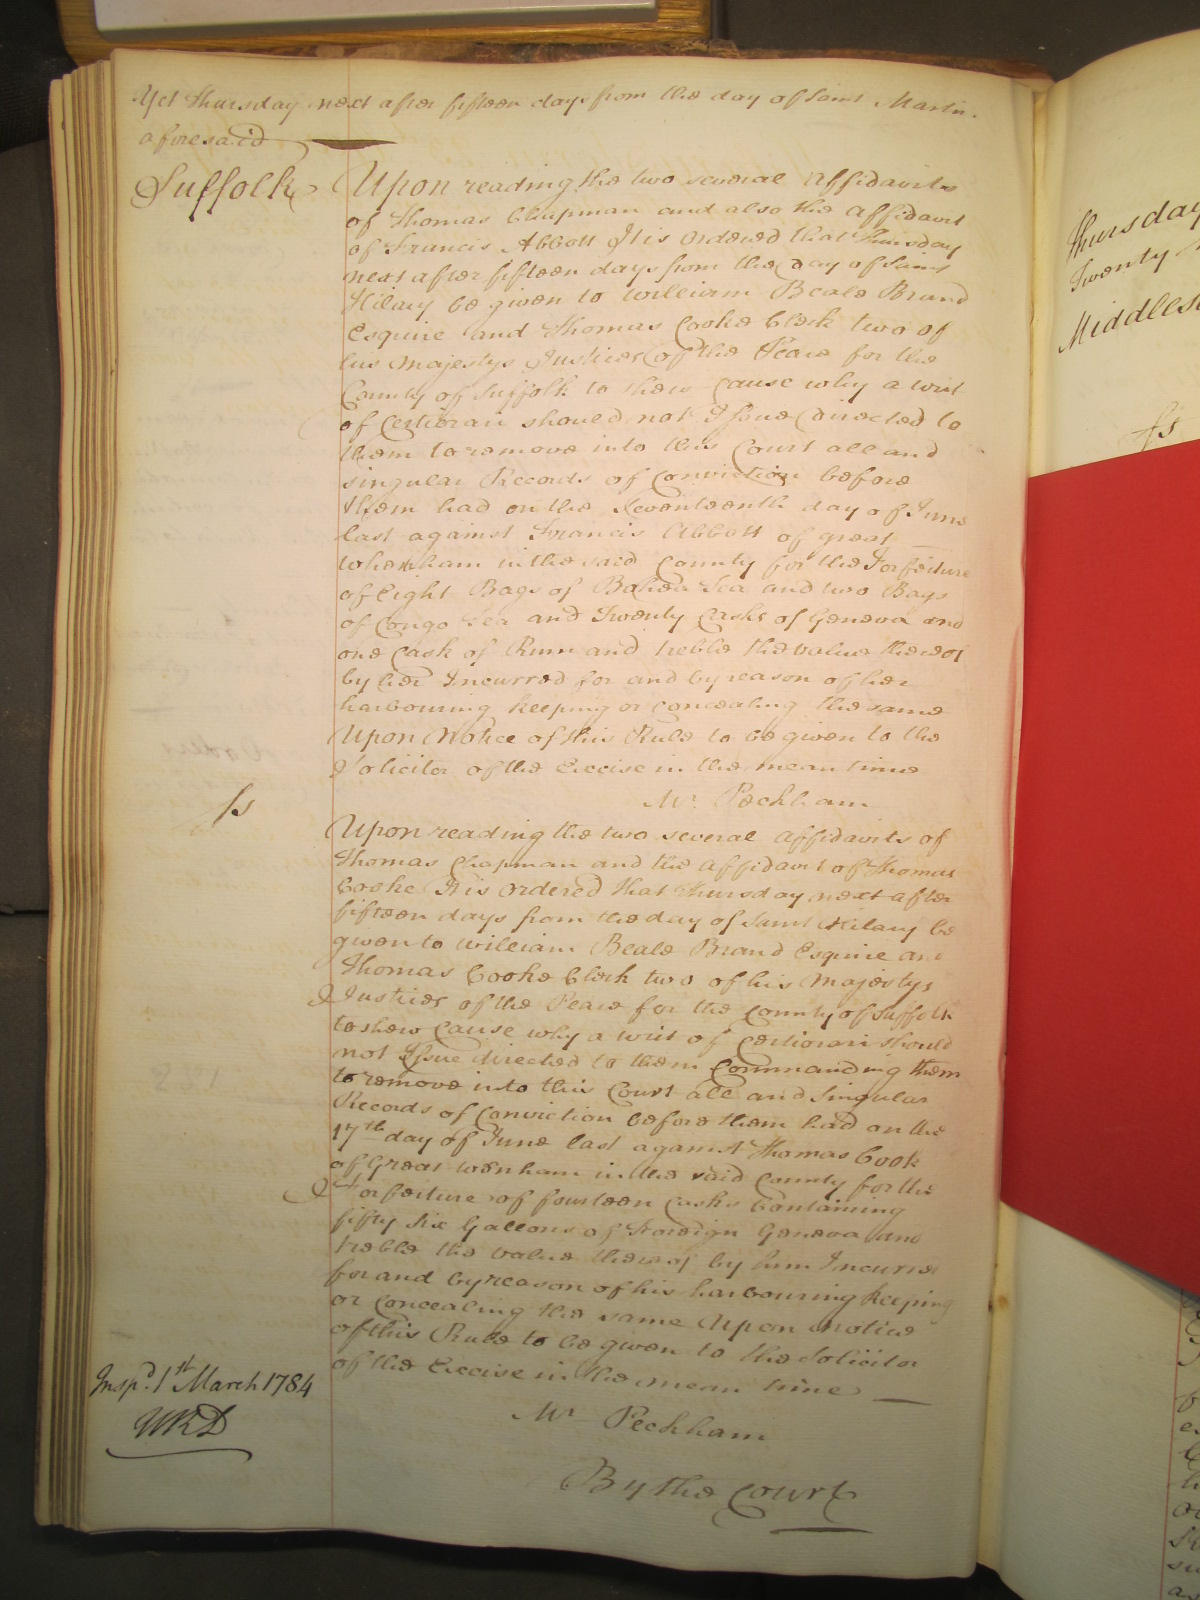 Yet Thursday next after fifteen days from the day of Saint Martin
aforesaid
Suffolk
Upon reading the two several affidavits
of Thomas Chapman and also the affidavit
of Francis Abbott It is Ordered that Thursday
next after fifteen days from the day of Saint
Hilary be given to William Beale Brand
Esquire and Thomas Cooke Clerk two of
his Majestys Justices of the Peace for the
County of Suffolk to shew cause why a writ
of Certiorari should not Issue directed to
them to remove into this Court all and
singular Records of Conviction before
them had on the Seventeenth day of June
last against Francis Abbott of great
Whenham in the said County for the Forfeiture
of Eight Bags of Bohea Tea and two Bags
of Congo Tea and Twenty Casks of Geneva and
one Cask of Rum and treble the value thereof
by her Incurred for and by reason of her
harbouring keeping or concealing the same
Upon Notice of this Rule to be given to the
Solicitor of the Excise in the mean time
Mr. Peckham
fs
Upon reading the two several affidavits of
Thomas Chapman and the affidavit of Thomas
Cooke It is Ordered that Thursday next after
fifteen days from the day of Saint Hilary be
given to William Beale Brand Esquire and
Thomas Cooke Clerk two of his Majestys
Justices of the Peace for the County of Suffolk
to shew cause why a writ of Certiorari should
not Issue directed to them Commanding them
to remove into this Court all and Singular
Records of Conviction before them had on the
17th day of June last against Thomas Cook
of Great Wenham in the said County for the
Forfeiture of fourteen Casks Containing
fifty six Gallons of Foreign Geneva and
treble the value thereof by him Incurred
for and by reason of his harbouring keeping
or concealing the same Upon notice
of this Rule to be given to the Solicitor
of the Excise in the mean time
Mr Peckham
By the Court
Inspd. 1st March 1784
Thursday
Twenty
Middlese
fs